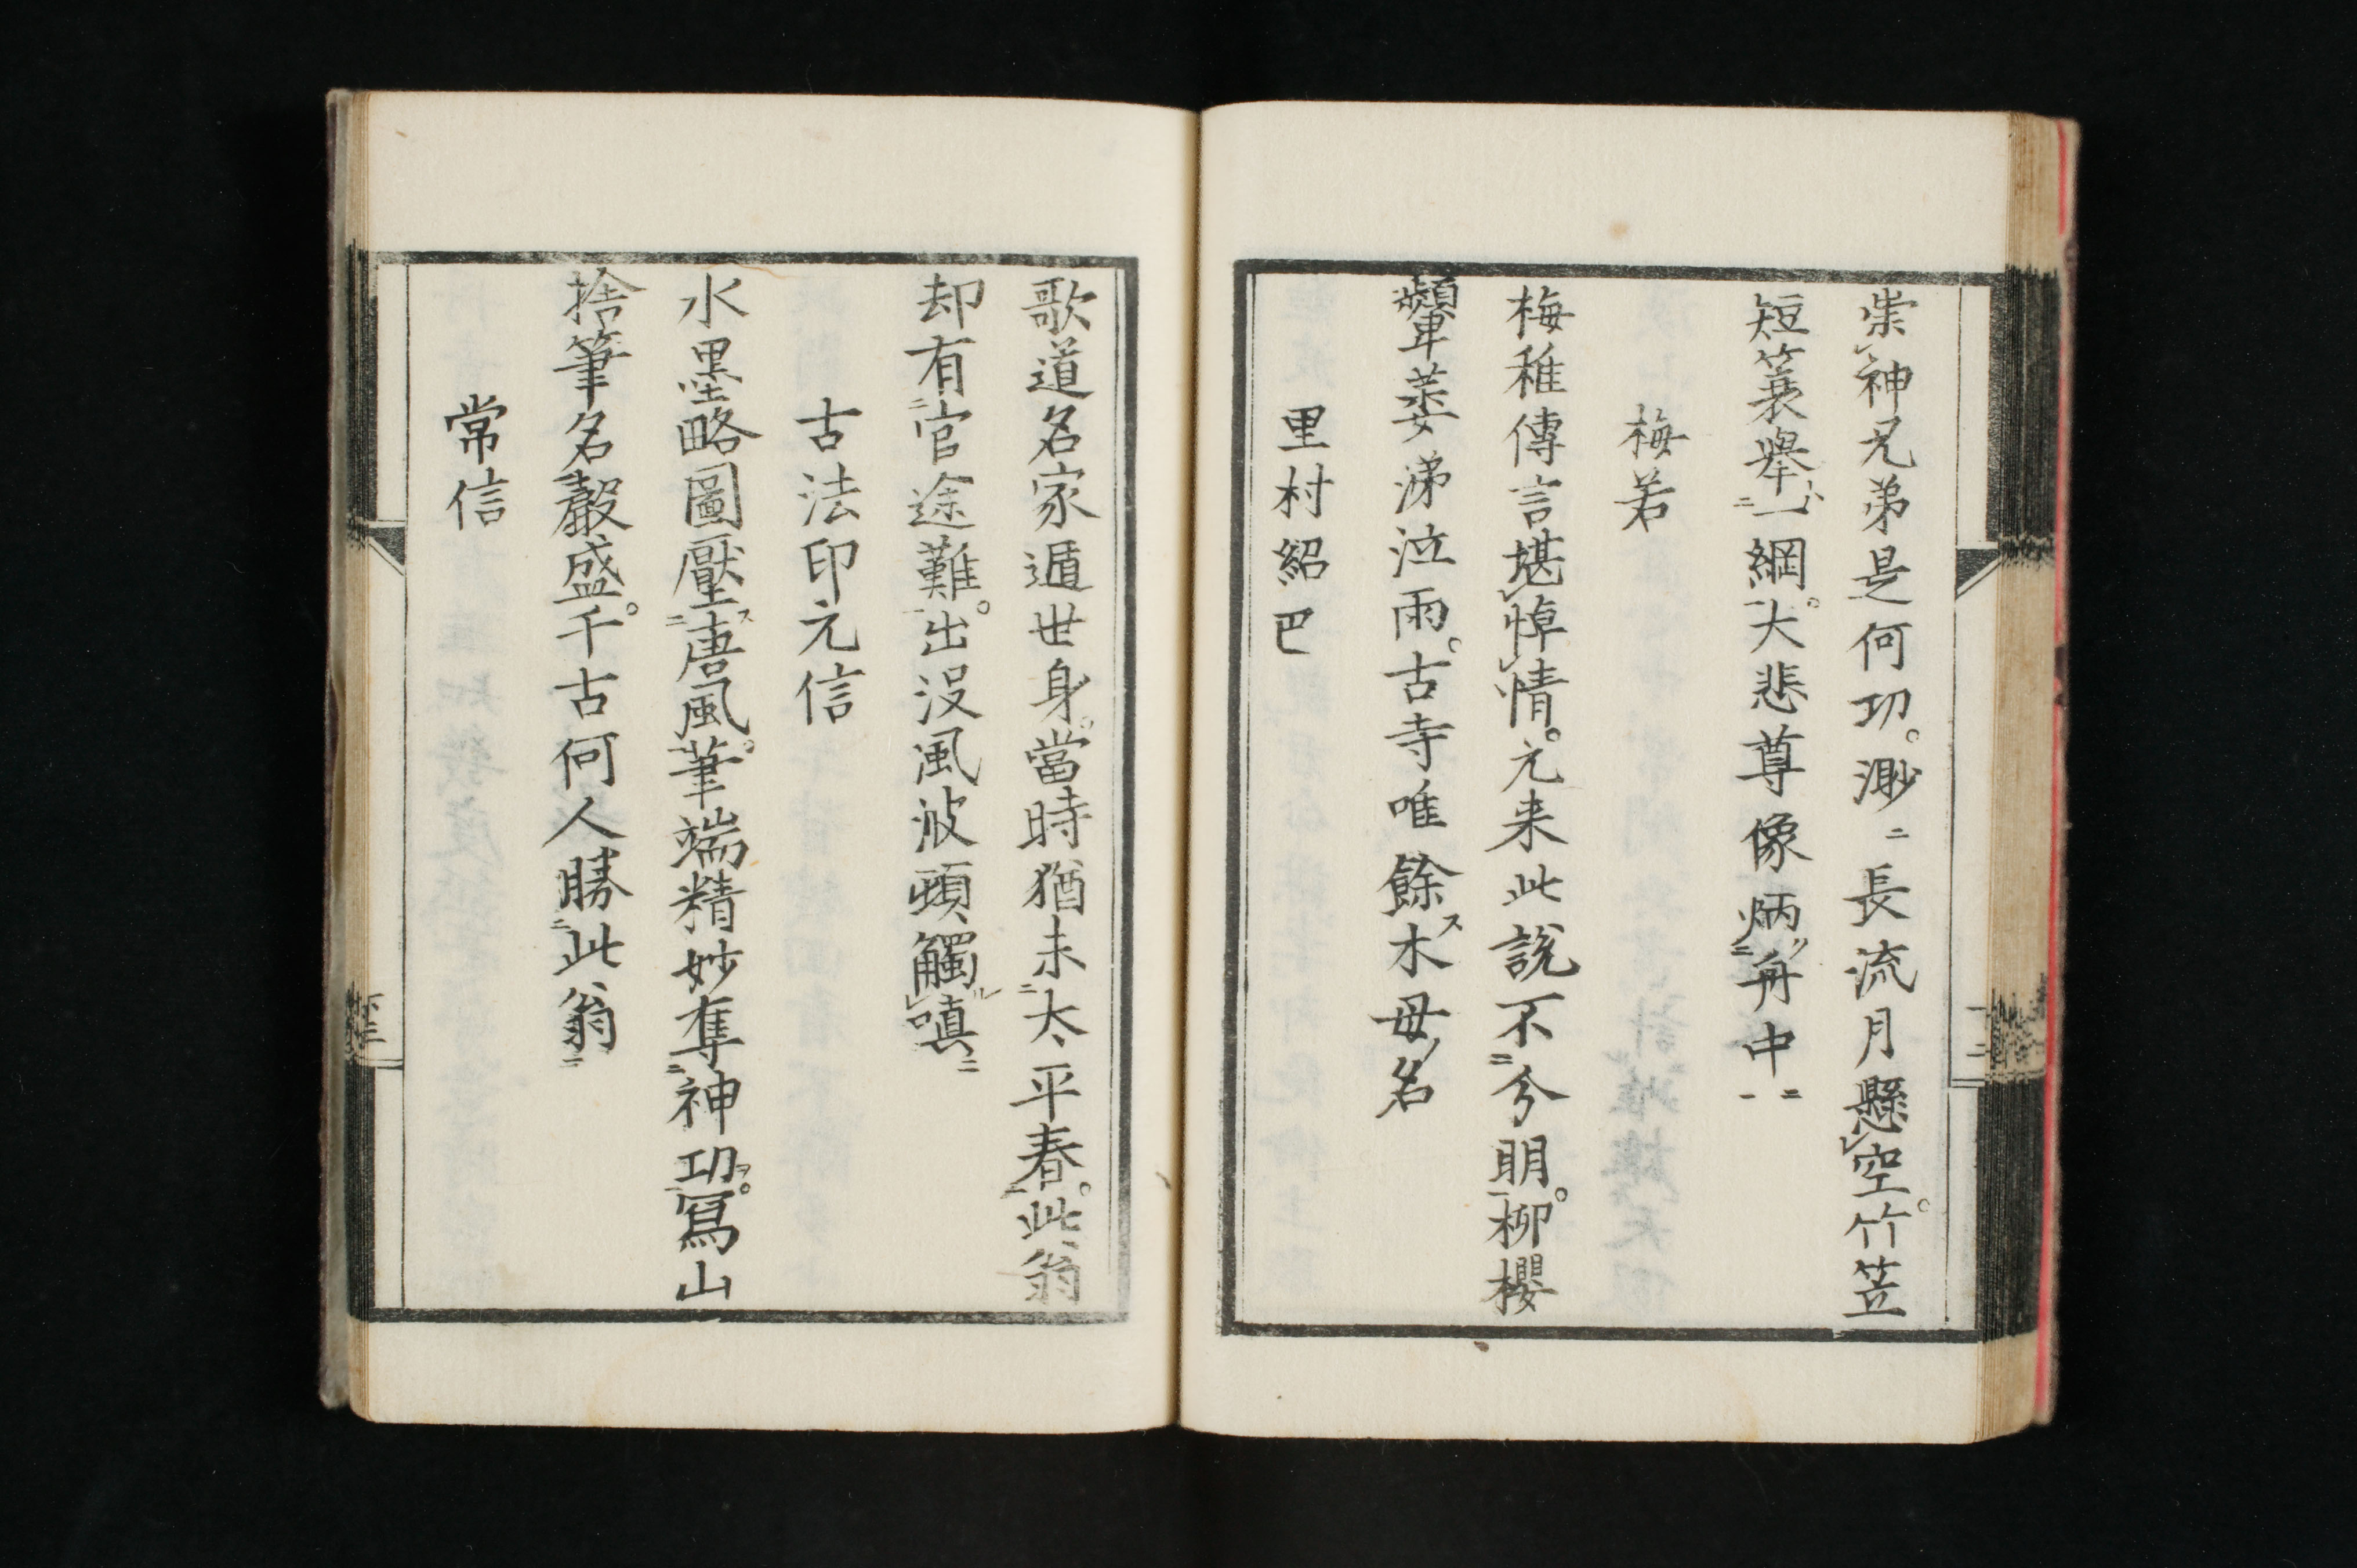 崇神兄弟是何功。渺〻長流月懸空。竹笠
短簑舉一綱。大悲尊像炳舟中
梅若
梅稚傳言堪悼情。元来此說不分明。柳櫻
顰萎涕泣雨。古寺唯餘木母名
里村紹巴
歌道名家遁世身。當時猶未太平春。此翁
却有官途難。出沒風波頭觸嗔
古法印元信
水墨略圖壓唐風。筆端精妙奪神功。寫山
捨筆名聲盛。千古何人勝此翁
常信